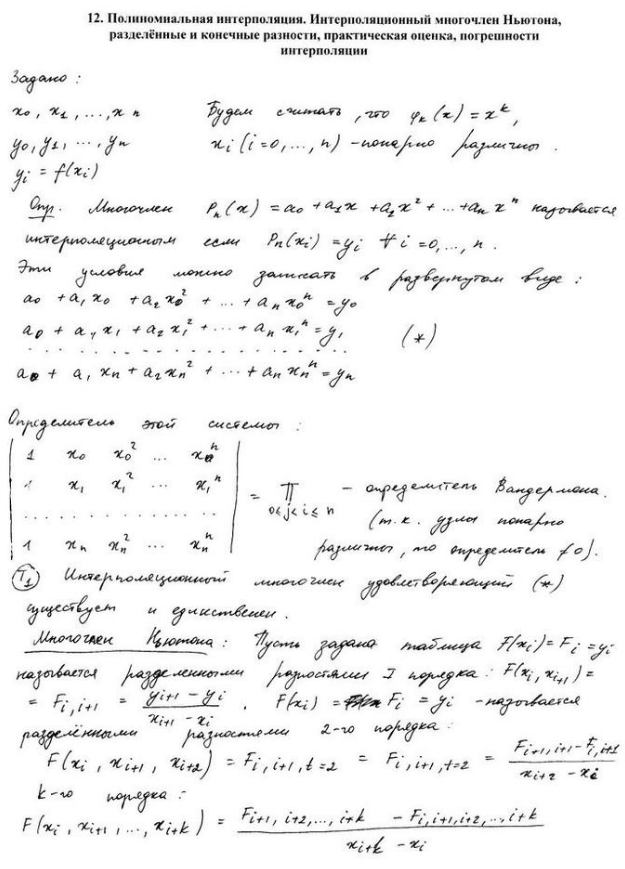 12. Полиномиальная интерполяция. Интерполяционный многочлен Ньютона,
разделённые и конечные разности, практическая оценка, погрешности
интерполяции
Задано:
x₀, x₁, ..., xₙ Будем считать, что φₖ(x) = xᵏ,
y₀, y₁, ..., yₙ xᵢ (i=0, ..., n) - попарно различны.
yᵢ = f(xᵢ)
Опр. Многочлен Pₙ(x) = a₀ + a₁x + a₂x² + ... + aₙxⁿ называется
интерполяционным если Pₙ(xᵢ) = yᵢ ∀ i = 0, ..., n.
Эти условия можно записать в развернутом виде:
a₀ + a₁x₀ + a₂x₀² + ... + aₙx₀ⁿ = y₀
a₀ + a₁x₁ + a₂x₁² + ... + aₙx₁ⁿ = y₁ (*)
. . . . . . . . . . . . . . . . . . . .
a₀ + a₁xₙ + a₂xₙ² + ... + aₙxₙⁿ = yₙ
Определитель этой системы:
| 1 x₀ x₀² ... x₀ⁿ |
| 1 x₁ x₁² ... x₁ⁿ | = ∏ 0≤j<i≤n - определитель Вандермона.
. . . . . . . . . . . . (т.к. узлы попарно
| 1 xₙ xₙ² ... xₙⁿ | различны, то определитель ≠0).
(T₁) Интерполяционный многочлен удовлетворяющий (*)
существует и единственен.
Многочлен Ньютона: Пусть задана таблица F(xᵢ) = Fᵢ = yᵢ
называется разделенными разностями I порядка: F(xᵢ, xᵢ₊₁) =
= Fᵢ,ᵢ₊₁ = (yᵢ₊₁ - yᵢ)/(xᵢ₊₁ - xᵢ). F(xᵢ) = Fᵢ = yᵢ - называется
разделёнными разностями 2-го порядка:
F(xᵢ, xᵢ₊₁, xᵢ₊₂) = Fᵢ,ᵢ₊₁,t=2 = Fᵢ,ᵢ₊₁,t=2 = (Fᵢ₊₁,ᵢ₊₁ - Fᵢ,ᵢ₊₁)/(xᵢ₊₂ - xᵢ)
k-го порядка:
F(xᵢ, xᵢ₊₁, ..., xᵢ₊ₖ) = (Fᵢ₊₁,ᵢ₊₂,...,ᵢ₊ₖ - Fᵢ,ᵢ₊₁,ᵢ₊₂,...,ᵢ₊ₖ)/(xᵢ₊ₖ - xᵢ)